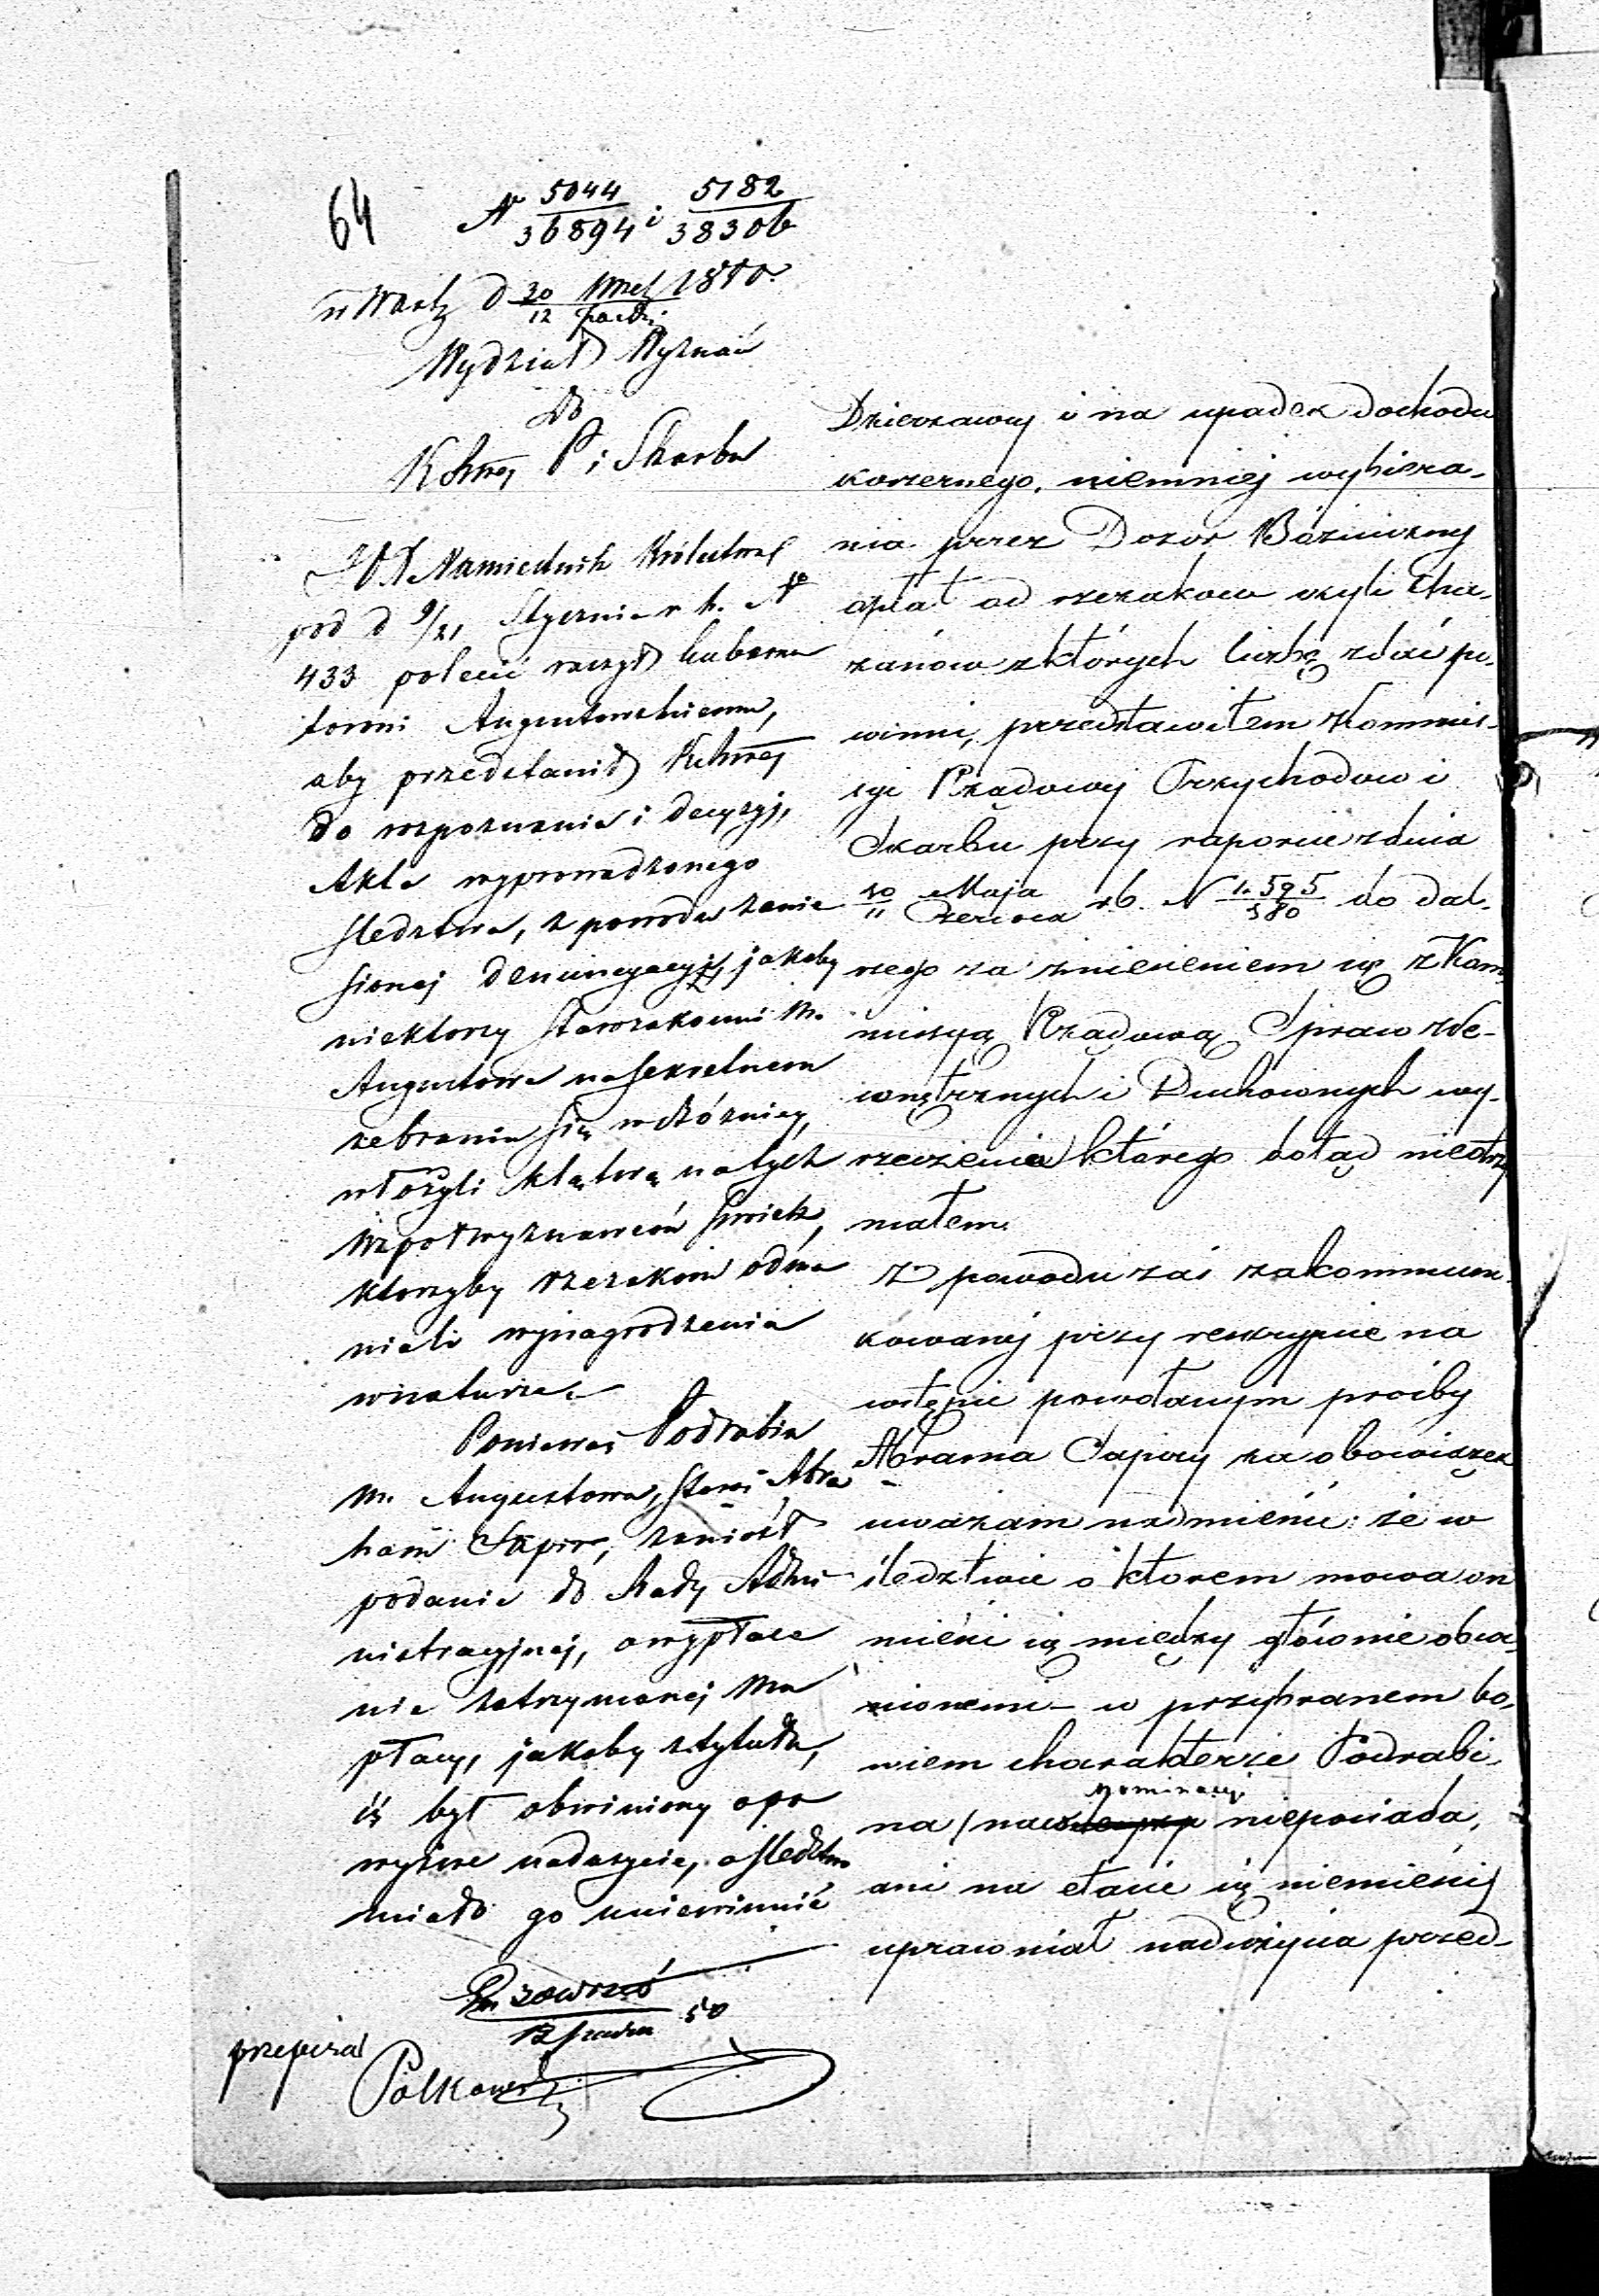 64
No 5044/36894 i 5182/38306
w Warsz d 30 Wrześ/12 Paździ 1850
Wydział Wyznań
do
KRząj P i Skarbu
JO Namiestnik Królestwa
pod d 9/21 Stycznia r. b. No
433 polecić raczył Guberna
torowi Augustowskiemu,
aby przedstawił KRząj
do rozpoznania i decyzyj,
Akta wyprowadzonego
śledztwa, z powodu zanie
sionej denuncyacyi, jakoby
niektorzy starozakonni m.
Augustowa na sekretnem
zebraniu się w bóżnicy,
włożyli klątwę na tych
współwyznawców swoich,
ktorzyby rzezakom odma
wiali wynagrodzenia
w naturze.
Ponieważ Podrabin
m. Augustowa, Staroz Abra
ham Sapir, zaniósł
podanie do Rady Admi
nistracyjnej, o wypłace
nie zatrzymanej mu
płacy, jakoby z tytułu,
iż był obwiniony o po
wyższe nadużycie, a śledztwo
miało go uniewinnić
12 50
przepisał
Polkowski
Dzierzawy i na upadek dochodu
koszernego, niemniej wybiera-
nia przez Dozor Bóżniczny
opłat od rzezakow czyli Cha-
zanów z których liczbę zdać po-
winni, przedstawiłem Kommis-
syi Rządowej Przychodow i
Skarbu przy raporcie z dnia
30 Maja/11 Czerwca r b. N 1.595/380 do dal-
szego za zniesieniem się z Kom
missyą Rządową Spraw We-
wnętrznych i Duchownych wy-
rzeczenia którego dotąd nieotrzy
małem.
Z powodu zaś zakommuni-
kowanej przy reskrypcie na
wstępie powołanym prośby
Abrama Sapiry za obowiązek
uważam nadmienić: że w
śledztwie o ktorem mowa on
mieści się między głównie obwi-
nionemi – w przybranem bo-
wiem charakterze Podrabi-
na / na co nominacyi nieposiada,
ani na etacie się niemieści /
uprawniał nadużycia przed-